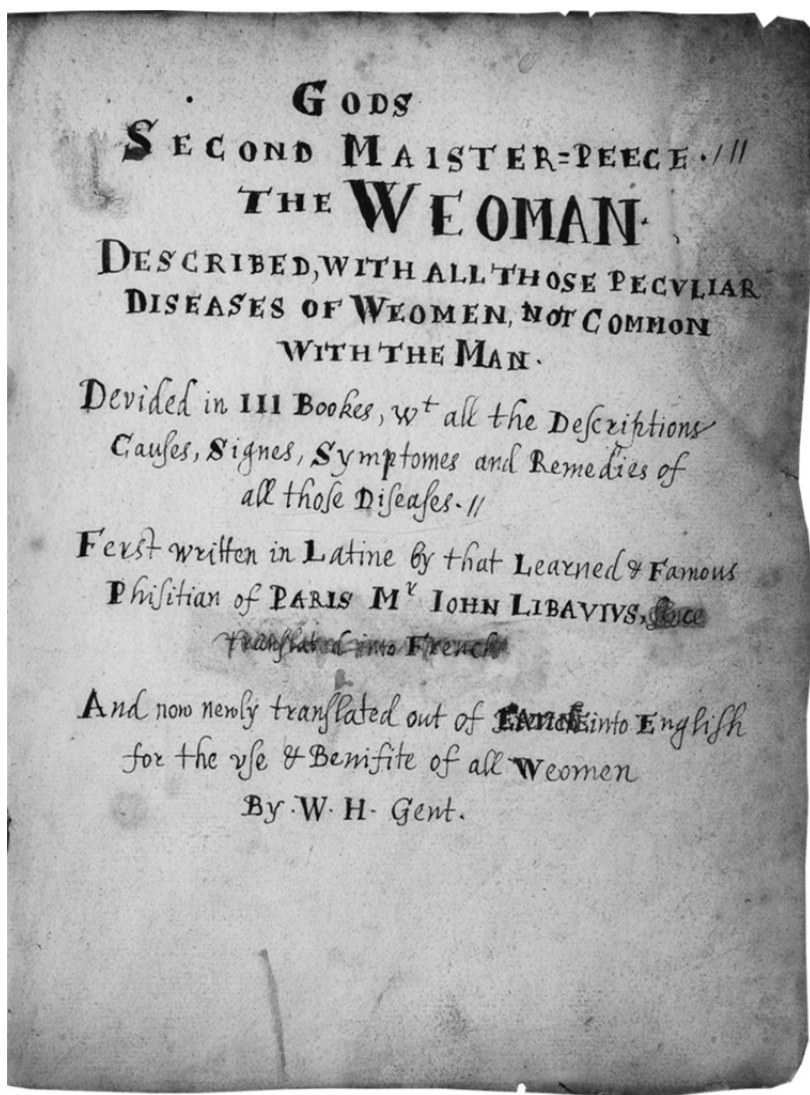 GODS
SECOND MAISTER=PEECE·///
THE WEOMAN·
DESCRIBED, WITH ALL THOSE PECVLIAR
DISEASES OF WEOMEN, NOT COMMON
WITH THE MAN·
Devided in III Bookes, wᵗ all the Deſcriptions
Cauſes, Signes, Symptomes and Remedies of
all thoſe Diſeaſes·//
Ferst written in Latine by that Learned & Famous
Phiſitian of PARIS Mʳ IOHN LIBAVIVS, ſince
tranſlated into French
And now newly tranſlated out of LATINE into Engliſh
for the vſe & Benifite of all Weomen
By·W·H· Gent.